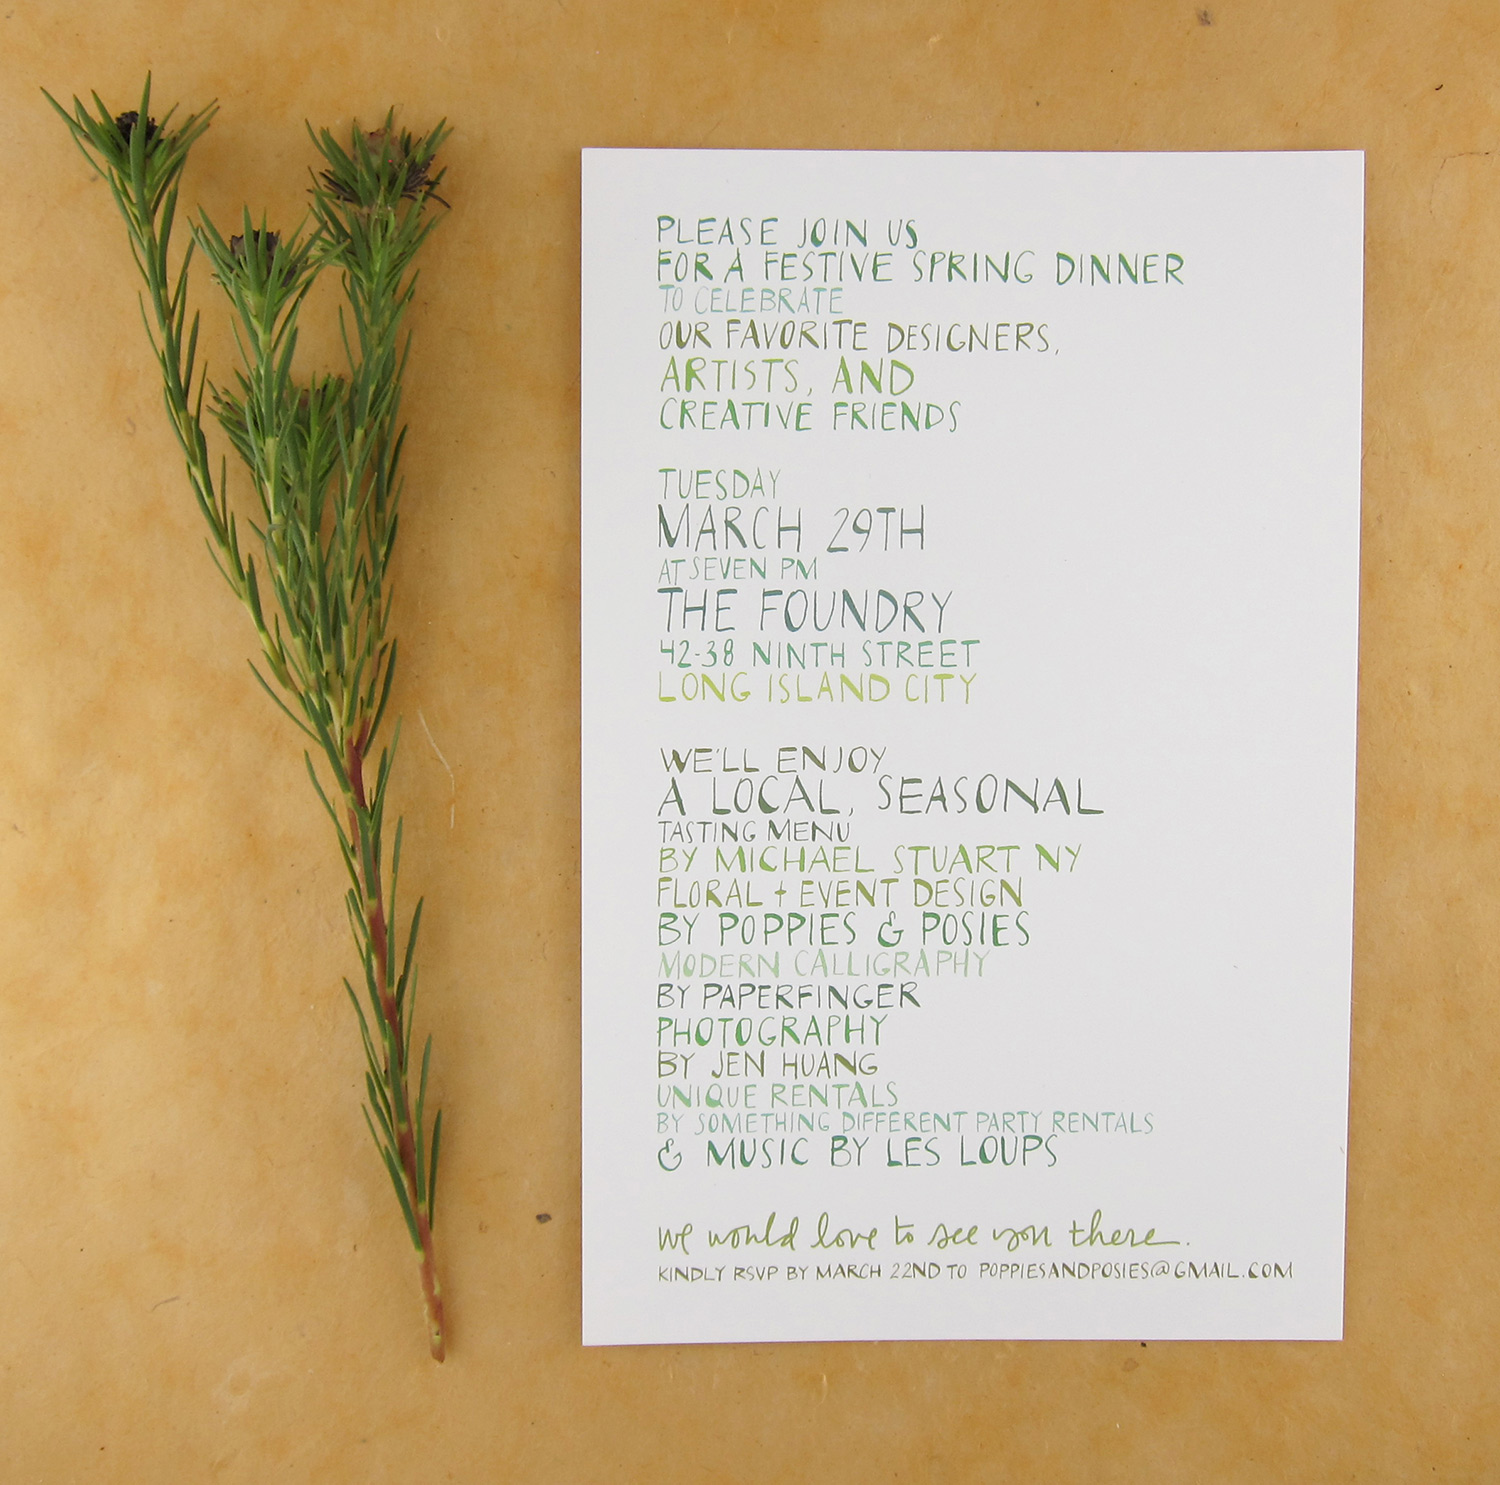 PLEASE JOIN US
FOR A FESTIVE SPRING DINNER
TO CELEBRATE
OUR FAVORITE DESIGNERS,
ARTISTS, AND
CREATIVE FRIENDS
TUESDAY
MARCH 29TH
AT SEVEN PM
THE FOUNDRY
42-38 NINTH STREET
LONG ISLAND CITY
WE'LL ENJOY
A LOCAL, SEASONAL
TASTING MENU
BY MICHAEL STUART NY
FLORAL + EVENT DESIGN
BY POPPIES & POSIES
MODERN CALLIGRAPHY
BY PAPERFINGER
PHOTOGRAPHY
BY JEN HUANG
UNIQUE RENTALS
BY SOMETHING DIFFERENT PARTY RENTALS
& MUSIC BY LES LOUPS
we would love to see you there.
KINDLY RSVP BY MARCH 22ND TO POPPIESANDPOSIES@GMAIL.COM